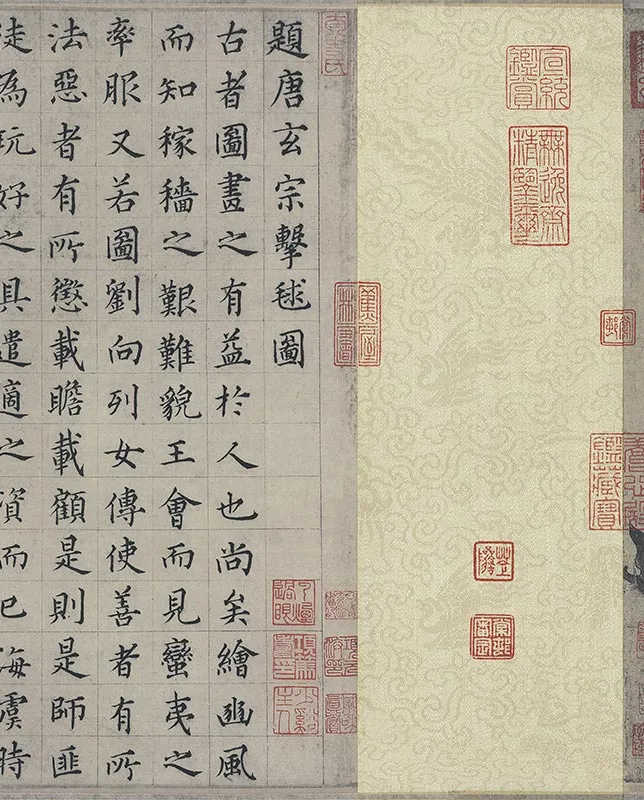 宣統鑑賞
無逸齋精鑒璽
蕉林書屋
題唐玄宗擊毬圖
古者圖畫之有益扵人也尚矣繪豳風
而知稼穡之艱難貌王會而見蠻夷之
率服又若圖劉向列女傳使善者有所
法惡者有所懲載瞻載顧是則是師匪
徒為玩好之具遣適之資而已海虞時